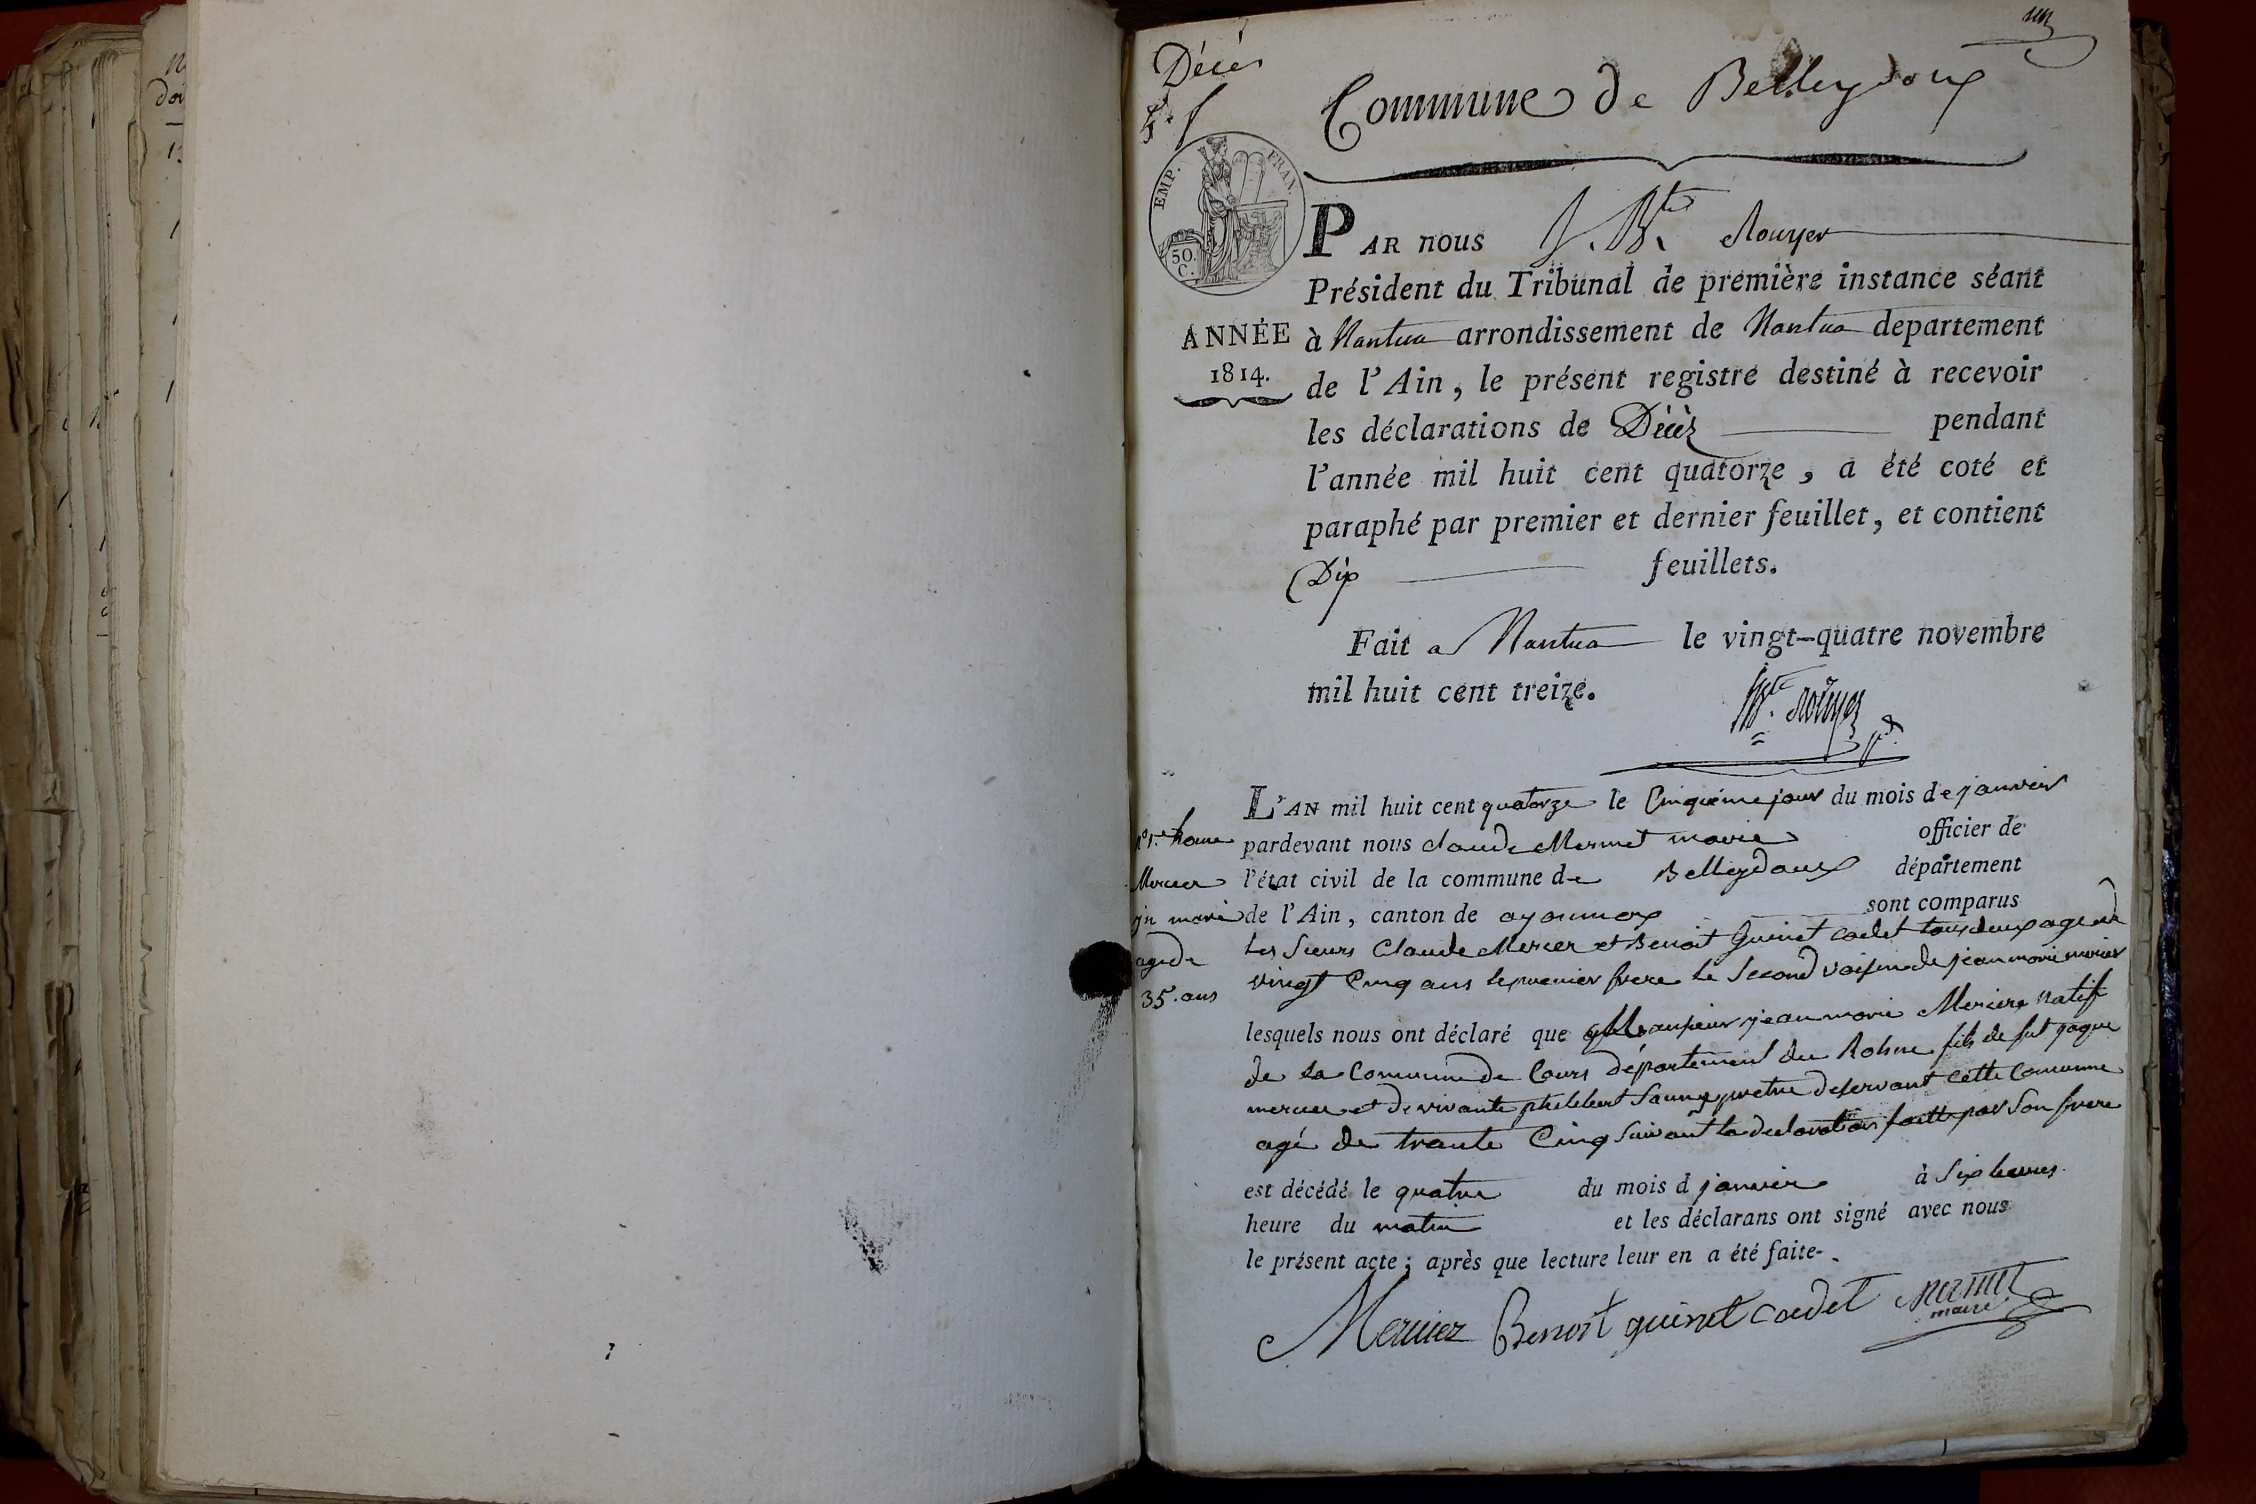 Décès
Commune de Belleydoux
EMP. FRAN.
50.
C.
PAR nous J. Bte. Rouyer
Président du Tribunal de première instance séant
ANNÉE
1814.
à Nantua arrondissement de Nantua departement
de l'Ain, le présent registre destiné à recevoir
les déclarations de Décès pendant
l'année mil huit cent quatorze, a été coté et
paraphé par premier et dernier feuillet, et contient
Dix feuillets.
Fait a Nantua le vingt-quatre novembre
mil huit cent treize.
JBte. Rouyer
L'AN mil huit cent quatorze le Cinquième jour du mois de janvier
pardevant nous claude Mermet maire officier de
l'état civil de la commune de Belleydoux département
de l'Ain, canton de oyonnax sont comparus
Les Sieurs Claude Mercier et Benoit Guinet cadet tous deux age de
vingt Cinq ans le premier frere le Second voisin de jean marie mercier
lesquels nous ont déclaré que jean marie Mercier natif
de la Commune de Cours département du Rohne fils de fut
mercier et de vivante pretre deservant cette Comunne
agé de trante Cinq suivant la declaration faitte par Son frere
est décédé le quatre du mois d janvier à Six heures
heure du matin et les déclarans ont signé avec nous
le présent acte; après que lecture leur en a été faite.
N° 1er
Mercier
jn marie
age de
35. ans
Mercier Benoit guinet cadet Mermet
maire